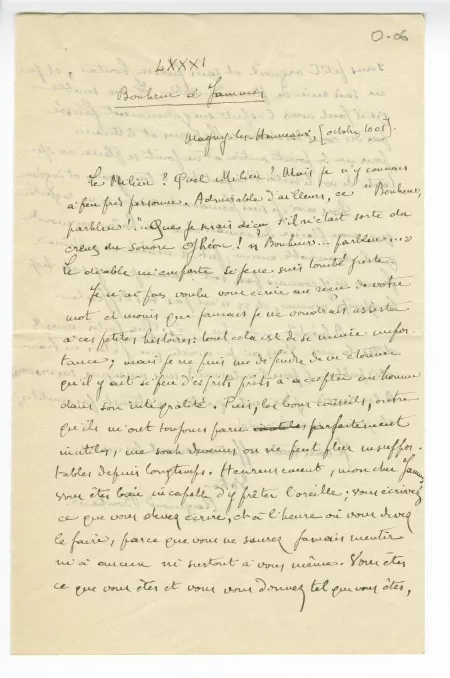 0-06
LXXXI
Bonheur à Jammes
Magny-les-Hameaux [octobre 1906].
Le Milieu ? Quel Milieu ? Mais je n'y connais
à peu près personne. Admirable d'ailleurs, ce "Bonheur,
parbleu !" Que je serais déçu s'il n'était sorti du
creux du sonore Ghéon ! "Bonheur... parbleu..."
Le diable m'emporte si je ne suis tombé juste.
Je n'ai pas voulu vous écrire au reçu de votre
mot et moins que jamais je ne voudrais
à ces petites histoires : tout cela est de si mince impor
tance ; mais je ne puis me défendre de m'étonner
qu'il y ait si peu d'esprits prêts à accepter un homme
dans son intégralité. Puis, les bons conseils, outre
qu'ils m'ont toujours paru inutiles parfaitement
inutiles, me sont devenus on ne peut plus insuppor-
tables depuis longtemps. Heureusement, mon cher Jammes
vous êtes bien incapable d'y prêter l'oreille ; vous écrivez
ce que vous devez écrire, et à l'heure où vous devez
le faire, parce que vous ne saurez jamais mentir
ni à aucun ni surtout à vous même. Vous êtes
ce que vous êtes et vous vous donnez tel que vous êtes,